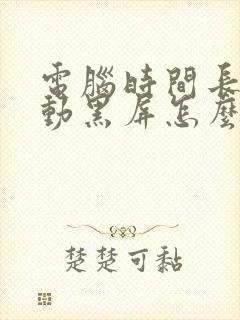 電腦時間長
動黑屏怎麼
楚楚可黏